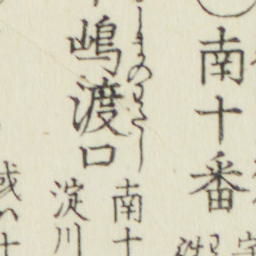 南十番
嶋渡口
しまのわたし
南十
淀川
或い十